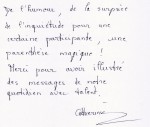 De l'humour, de la surprise
de l'inquiétude pour une
certaine participante, une
parenthèse magique !
Merci pour avoir illustré
des messages de notre
quotidien avec talent.
Catherine